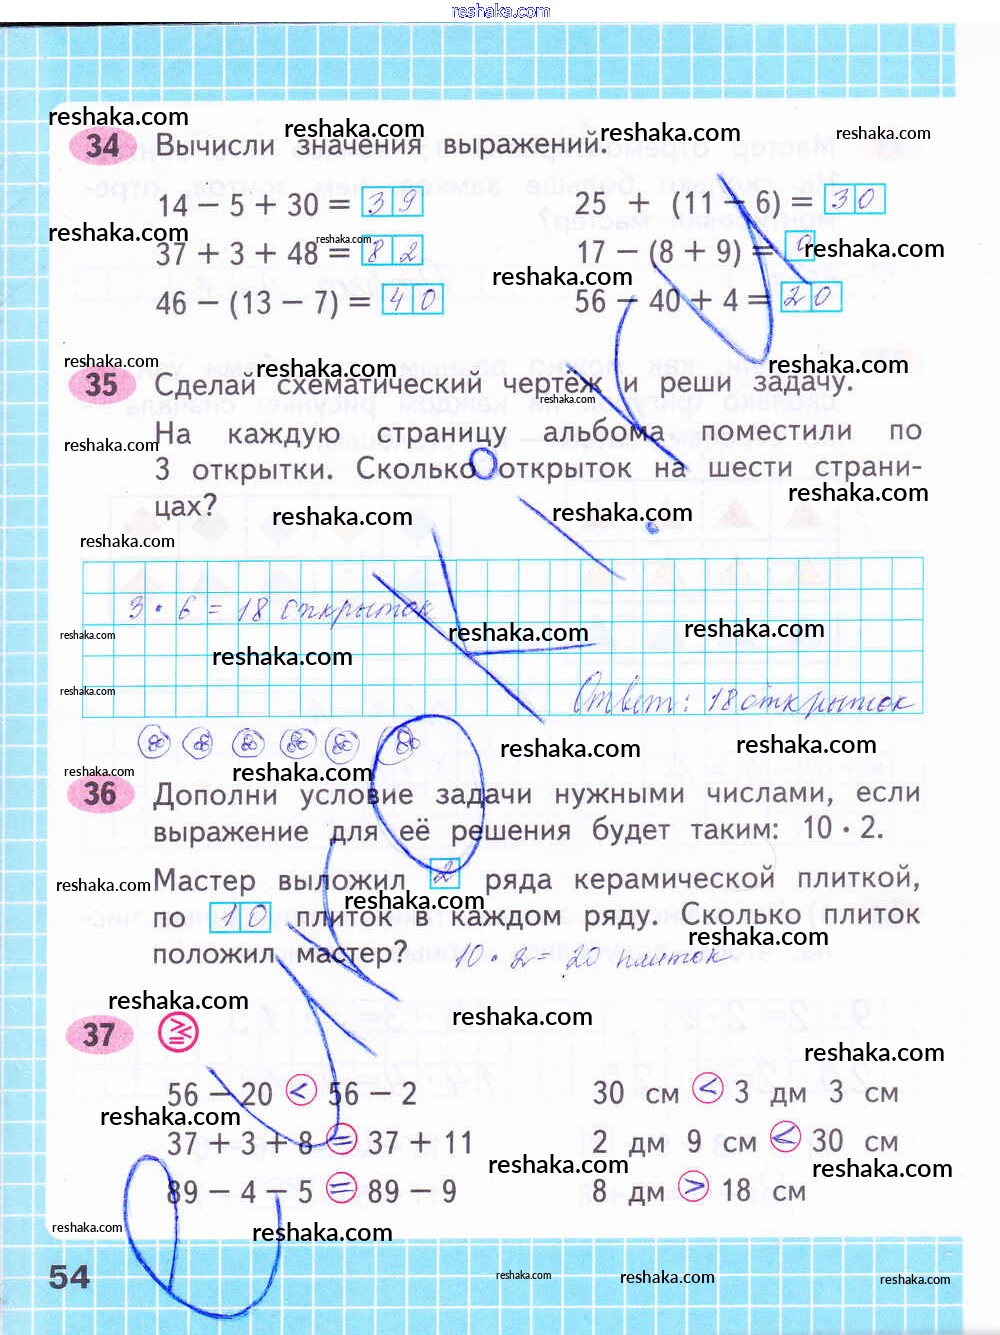 reshaka.com
reshaka.com reshaka.com reshaka.com
34 Вычисли значения выражений.
14 − 5 + 30 = 39 25 + (11 − 6) = 30
reshaka.com reshaka.com reshaka.com
37 + 3 + 48 = 82 17 − (8 + 9) = 0
reshaka.com
46 − (13 − 7) = 40 56 − 40 + 4 = 20
reshaka.com reshaka.com reshaka.com
35 Сделай схематический чертёж и реши задачу.
reshaka.com
На каждую страницу альбома поместили по
reshaka.com
3 открытки. Сколько открыток на шести страни-
reshaka.com
цах?
reshaka.com reshaka.com
reshaka.com
3 · 6 = 18 открыток
reshaka.com reshaka.com reshaka.com
reshaka.com
reshaka.com Ответ: 18 открыток
reshaka.com reshaka.com
reshaka.com reshaka.com
36 Дополни условие задачи нужными числами, если
выражение для её решения будет таким: 10 · 2.
Мастер выложил 2 ряда керамической плиткой,
reshaka.com reshaka.com
по 10 плиток в каждом ряду. Сколько плиток
reshaka.com
положил мастер? 10 · 2 = 20 плиток
reshaka.com reshaka.com
37
reshaka.com
56 − 20 < 56 − 2 30 см < 3 дм 3 см
reshaka.com
37 + 3 + 8 = 37 + 11 2 дм 9 см < 30 см
reshaka.com reshaka.com
89 − 4 − 5 = 89 − 9 8 дм > 18 см
reshaka.com reshaka.com
54 reshaka.com reshaka.com reshaka.com